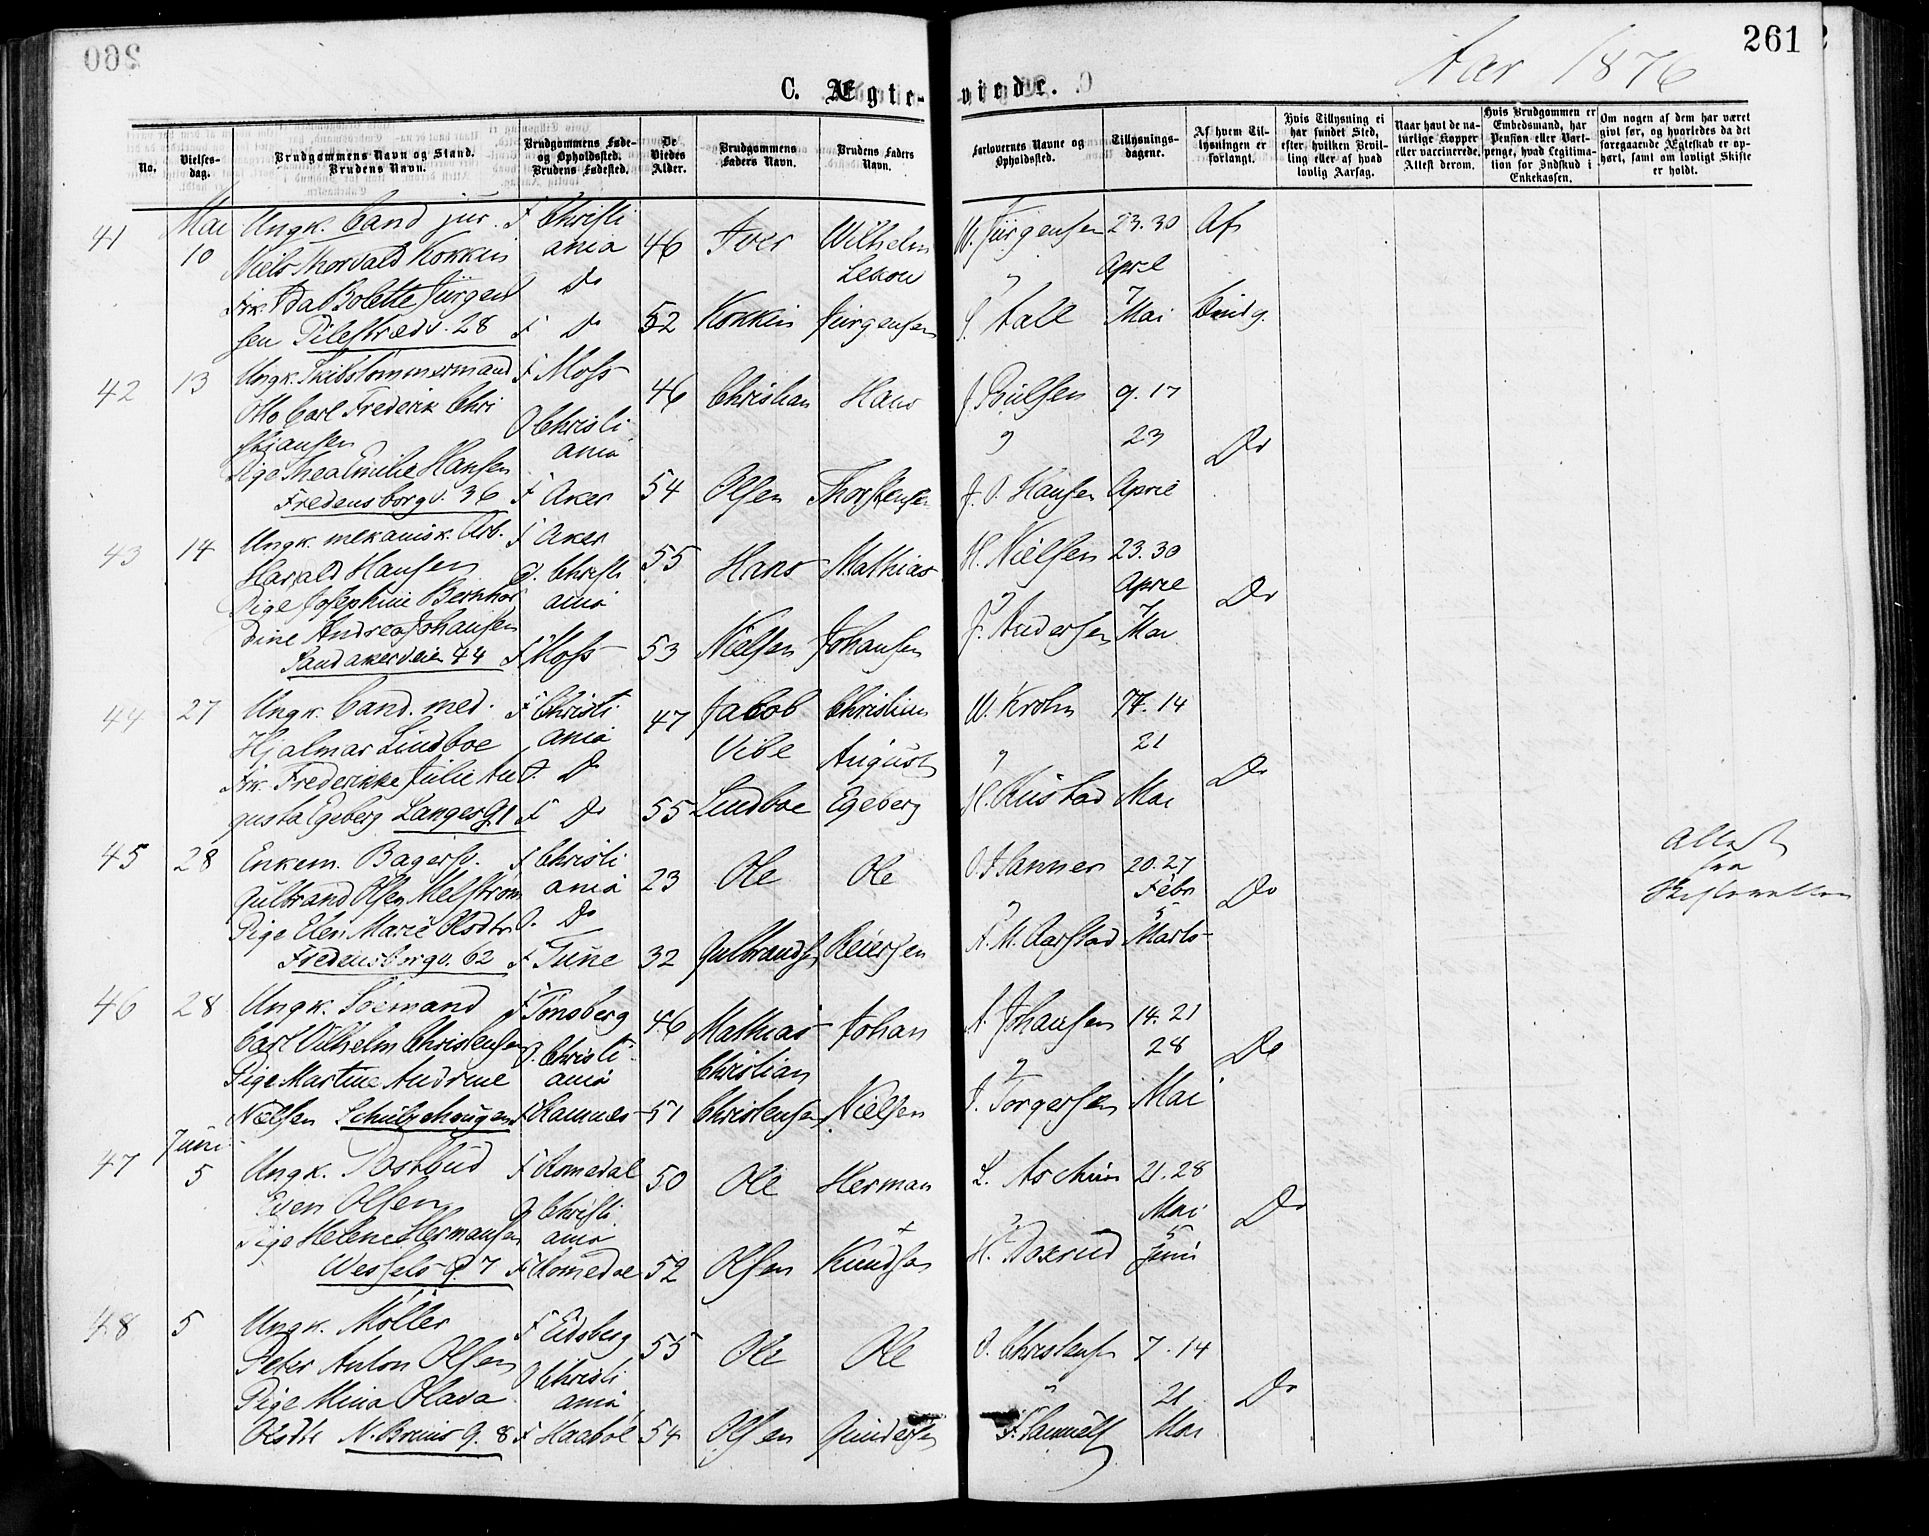 261
Aar 1876
C. Ægte-
viede.
No.
Vielses-
dag.
Brudgommens Navn og Stand.
Brudens Navn.
Brudgommens Føde-
og Opholdssted.
Brudens Fødested.
De
Viedes
Alder.
Brudgommens
Faders Navn.
Brudens Faders
Navn.
Forlovernes Navne og
Opholdssted.
Tillysnings-
dagene.
Af hvem Til-
lysningen er
forlangt.
Hvis Tillysning ei
har fundet Sted,
efter hvilken Bevil-
ling eller af hvad
lovlig Aarsag.
Naar havt de na-
turlige Kopper
eller vaccinerede.
Attest derom.
Hvis Brudgommen er
Embedsmand, har
Pension eller Vart-
penge, hvad Legitima-
tion for Indskud i
Enkekassen.
Om nogen af dem har været
gift før, og hvorledes da det
foregaaende Ægteskab er op-
hørt, samt om lovligt Skifte
er holdt.
41
Mai
10
Ungk. Cand jur.
Niels Thorvald Kokkin
Frk. Ida Bolette Jürgen
sen Pilestrædt. 28
F Christi
ania
O Do
F Do
46
52
Iver
Kokkin
Wilhelm
Lekow
Jürgensen
W. Jürgensen
"
S. Aall
23. 30
April
7
Mai
Af
Brudg.
42
13
Ungk. Skibstømmermand
Otto Carl Frederik Chri
stiansen
Pige Thea Emilie Hansen
Fredensborgv. 36
F Moss
O Christi
ania
F Aker
46
54
Christian
Olsen
Hans
Thorstensen
"
J. O. Hansen
9. 17
23
April
Do
43
14
Ungk. mekanisk. Arb.
Harald Hansen
Pige Josephine Bernhar
dine Andrea Johansen
Sandakerveien 44
F Aker
O. Christi
ania
F Moss
55
53
Hans
Nielsen
Mathias
Johansen
H. Nielsen
"
J. Andersen
23. 30
April
7
Mai
Do
44
27
Ungk. Cand. med.
Hjalmar Lindboe
Frk. Frederikke Julie Au
gusta Egeberg Langesg. 1
F Christi
ania
O. Do
F Do
47
55
Jacob
Vibe
Lindboe
Christian
August
Egeberg
W. Krohn
"
H. Rustad
7. 14
21
Mai
Do
45
28
Enkem. Bagersv.
Gulbrand Olsen Melstrøm
Pige Elen Marie Olsdtr.
Fredensborgv. 62
F Christi
ania
O. Do
F Tune
23
32
Ole
Gulbrandsen
Ole
Reiersen
O. Hanner
"
A. M. Aarstad
20. 27
Febr
5
Marts
Do
Attest
fra
Skifteretten
46
28
Ungk. Sømand
Carl Vilhelm Christensen
Pige Martine Andrine
Nielsen Schultzehaugen
F Tønsberg
O. Christi
ania
F Ramnes
46
51
Mathias
Christian
Christensen
Johan
Nielsen
A. Johansen
"
J. Torgersen
14. 21
28
Mai
Do
47
Juni
5
Ungk. Postbud
Even Olsen
Pige Helene Hermansen
Wessels G 7
F Romedal
O Christi
ania
F Romedal
50
52
Ole
Olsen
Herman
Knudsen
"
21. 28
Mai
5
Juni
Do
48
5
Ungk. Møller
Peter Anton Olsen
Pige Mina Olava
Olsdtr N. Bruuns g. 8
F Eidsberg
O Christi
ania
F Haabøl
55
54
Ole
Olsen
Ole
Gundersen
O. Christensen
"
7. 14
21
Mai
Do